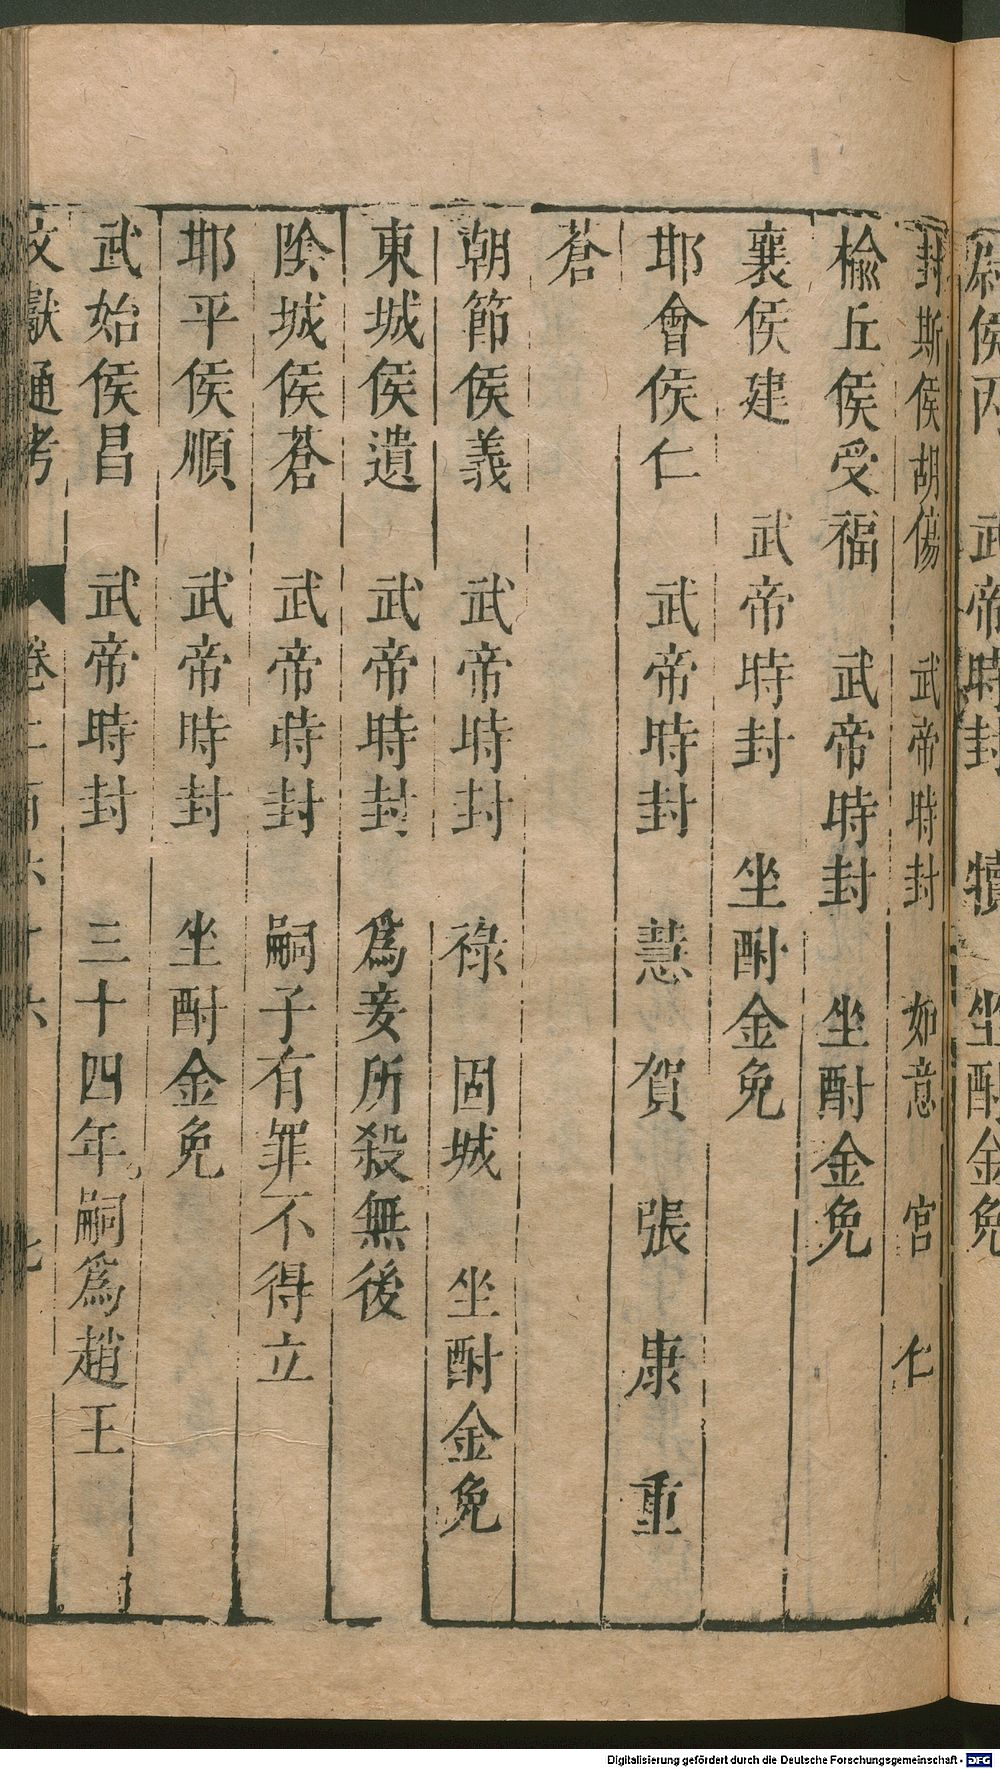 尉侯丙 武帝時封 犢 坐酎金免
封斯侯胡傷 武帝時封 如意 宮 仁
榆丘侯受福 武帝時封 坐酎金免
襄侯建 武帝時封 坐酎金免
邯會侯仁 武帝時封 慧 賀 張 康 重
蒼
朝節侯義 武帝時封 祿 固城 坐酎金免
東城侯遺 武帝時封 爲妾所殺無後
陰城侯蒼 武帝時封 嗣子有罪不得立
邯平侯順 武帝時封 坐酎金免
武始侯昌 武帝時封 三十四年嗣爲趙王
文獻通考 卷二百六十六 七
Digitalisierung gefördert durch die Deutsche Forschungsgemeinschaft - DFG